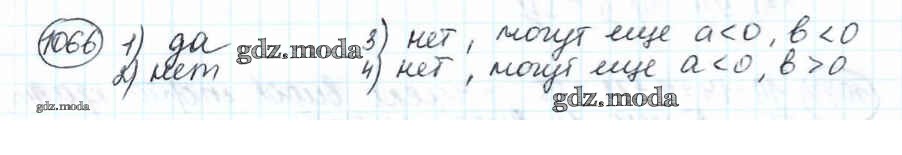 1066 1) да gdz.moda 3) нет, могут еще a<0, b<0
2) нет 4) нет, могут еще a<0, b>0
gdz.moda gdz.moda